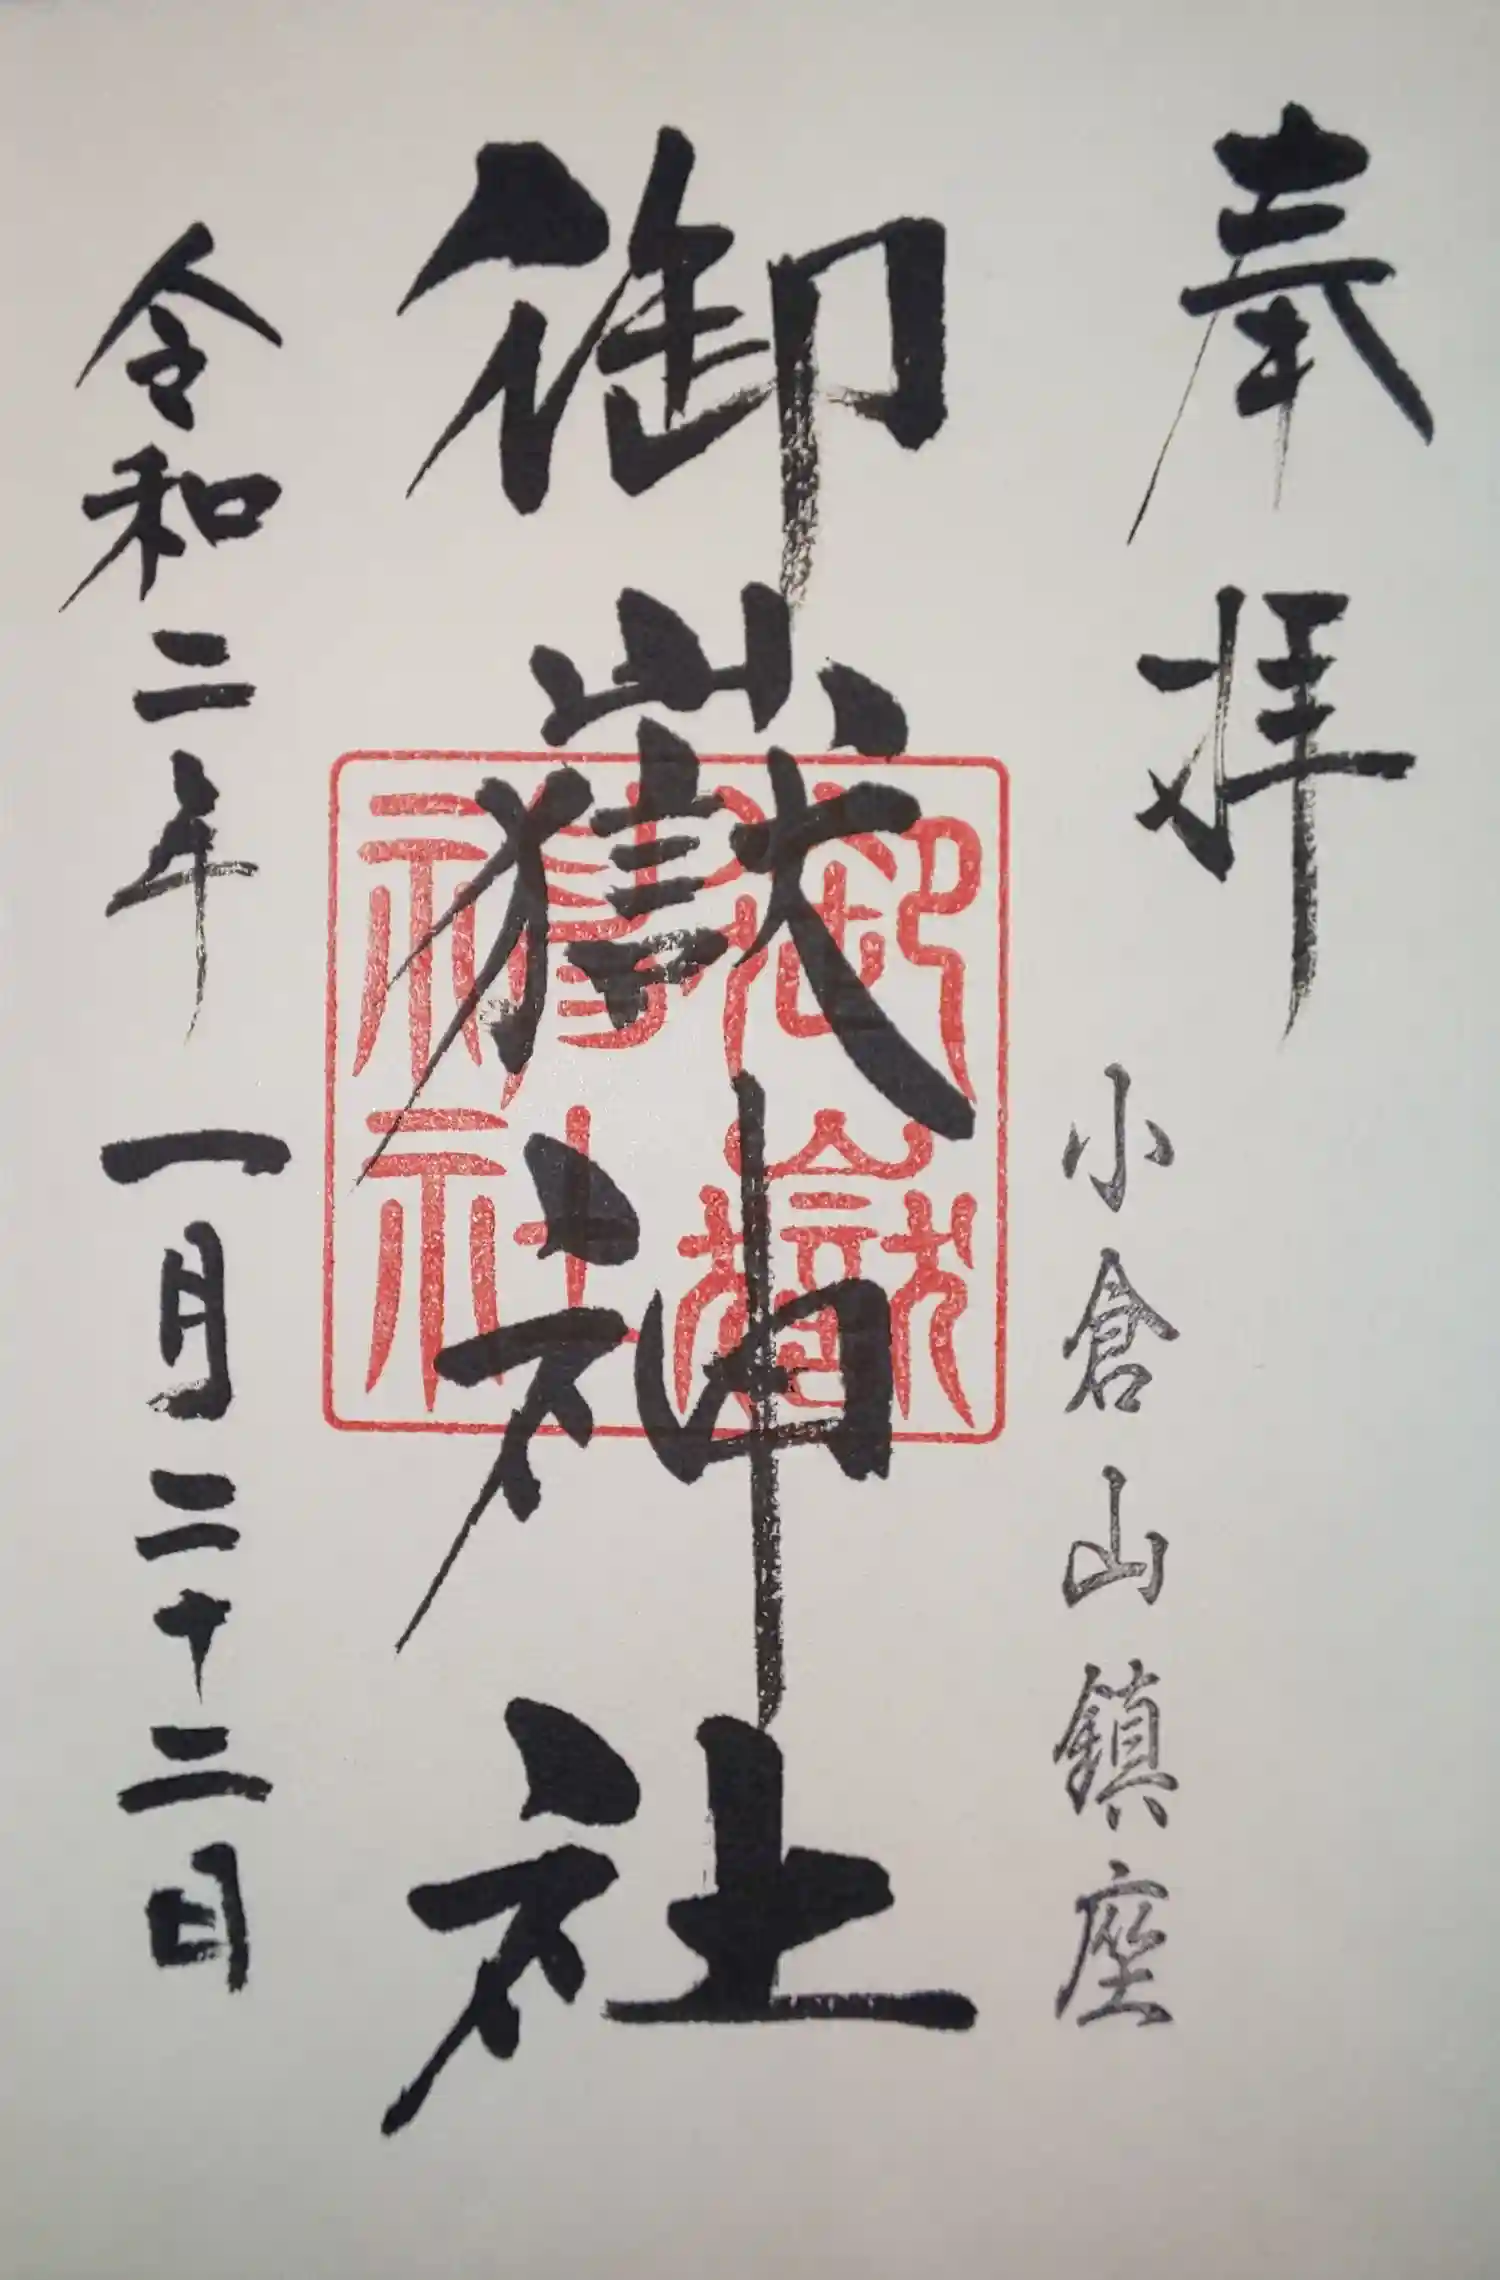 奉拝
小倉山鎮座
御嶽神社
御嶽
神社
令和二年一月二十二日